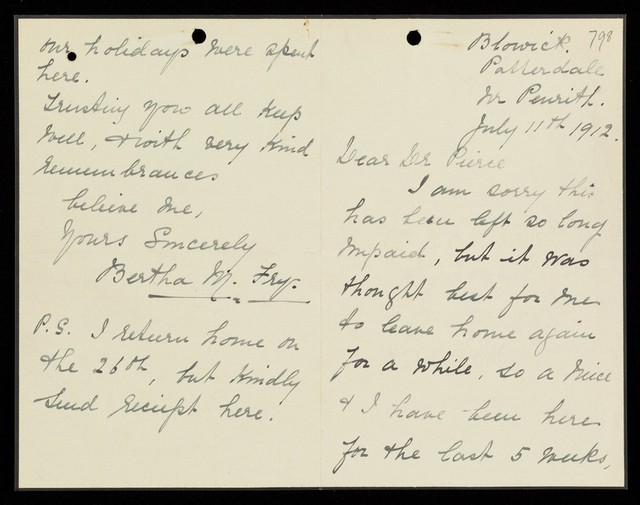 798
Blowick.
Patterdale
Nr Penrith.
July 11th 1912.
Dear Dr Pierce
I am sorry this
has been left so long
unpaid, but it was
thought best for me
to leave home again
for a while, so a niece
& I have been here
for the last 5 weeks,
our holidays were spent
here.
Trusting you all keep
well, & with very kind
remembrances
believe me,
Yours Sincerely
Bertha M. Fry.
P.S. I return home on
the 26th, but kindly
send receipt here.